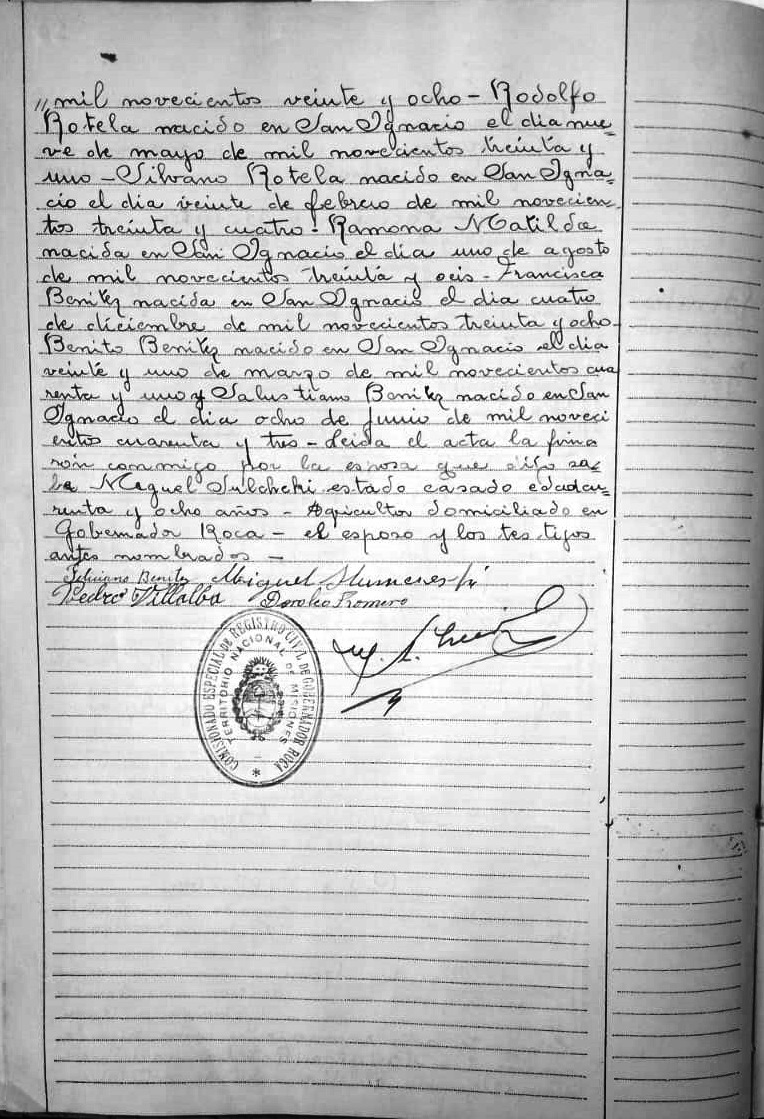 " mil novecientos veinte y ocho - Rodolfo
Rotela nacido en San Ignacio el dia nue=
ve de mayo de mil novecientos treinta y
uno - Silvano Rotela nacido en San Igna=
cio el dia veinte de febrero de mil novecien=
tos treinta y cuatro - Ramona Matilde
nacida en San Ignacio el dia uno de agosto
de mil novecientos treinta y ocis - Francisca
Benitez nacida en San Ignacio el dia cuatro
de diciembre de mil novecientos treinta y ocho -
Benito Benitez nacido en San Ignacio el dia
veinte y uno de marzo de mil novecientos cua
renta y uno y Salustiano Benitez nacido en San
Ignacio el dia ocho de junio de mil noveci
entos cuarenta y tres - Leida el acta la firma
ron conmigo por la esposa que dijo sa=
be Miguel estado casado edad cu=
renta y ocho años - Agricultor domiciliado en
Gobernador Roca - el esposo y los testigos
antes nombrados -
Feliciano Benitez Miguel
Pedro Villalba Doroteo Romero
COMISIONADO ESPECIAL DE REGISTRO CIVIL DE GOBERNADOR ROCA
TERRITORIO NACIONAL DE MISIONES